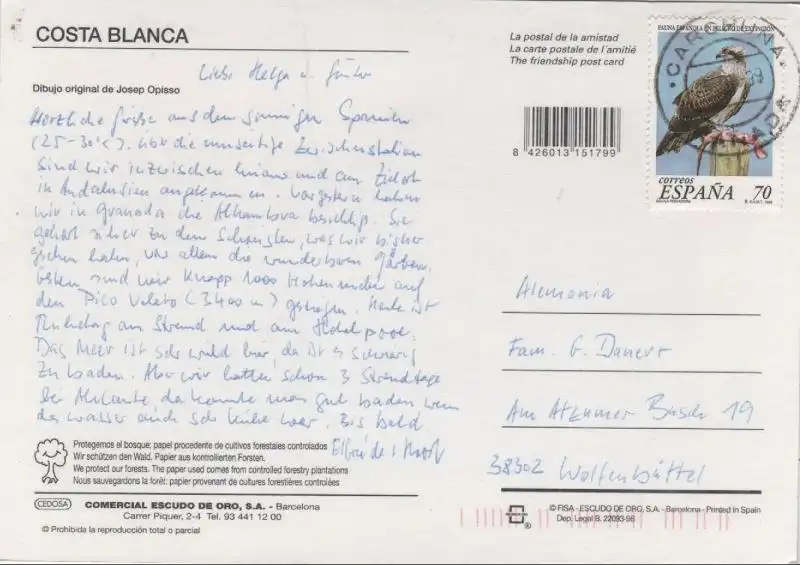 COSTA BLANCA
Liebe Helga u. Günter
Dibujo original de Josep Opisso
Herzliche Grüße aus dem sonnigen Spanien
(25-30°C). Über die
Zwischenstation
sind wir inzwischen hinaus und am Zielort
in Andalusien angekommen. Vorgestern haben
wir in Granada die Alhambra besichtigt. Sie
gehört sicher zu dem Schönsten, was wir bisher
gesehen haben, vor allem die wunderbaren Gärten.
Gestern sind wir knapp 1000 Höhenmeter auf
den Pico Veleta (3400 m) gestiegen. Heute ist
Ruhetag am Strand und am Hotelpool.
Das Meer ist sehr wild hier, da ist es schwierig
zu baden. Aber wir hatten schon 3 Strandtage
bei Alicante da konnte man gut baden wenn
das Wasser auch sehr kühl war. Bis bald
Protegemos el bosque; papel procedente de cultivos forestales controlados
Wir schützen den Wald. Papier aus kontrollierten Forsten.
We protect our forests. The paper used comes from controlled forestry plantations
Nous sauvegardons la forêt: papier provenant de cultures forestières contrôlées
CEDOSA COMERCIAL ESCUDO DE ORO, S.A. - Barcelona
Carrer Piquer, 2-4 Tel. 93 441 12 00
© Prohibida la reproducción total o parcial
La postal de la amistad
La carte postale de l'amitié
The friendship post card
8 426013 151799
FAUNA ESPAÑOLA EN PELIGRO DE EXTINCIÓN
CARCHUNA
correos
ESPAÑA 70
Alemania
Fam. G. Danert
Am Atzumer Busch 19
38302 Wolfenbüttel
© FISA - ESCUDO DE ORO, S.A. - Barcelona - Printed in Spain
Dep. Legal B. 22093-98